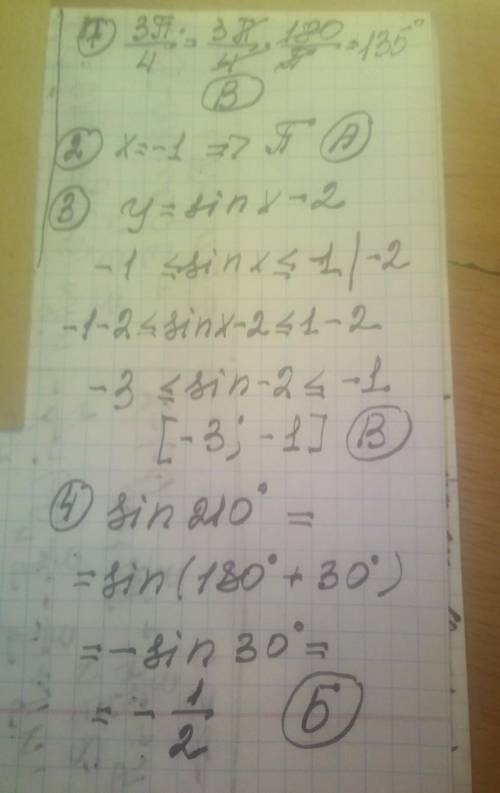 ① 3π/4 = 3π/4 · 180/π = 135°
В
② x = -1 => π А
③ y = sin x - 2
-1 ≤ sin x ≤ -1 | -2
-1-2 ≤ sin x - 2 ≤ 1-2
-3 ≤ sin - 2 ≤ -1
[-3; -1] В
④ sin 210° =
= sin(180° + 30°)
= - sin 30° =
= - 1/2 Б